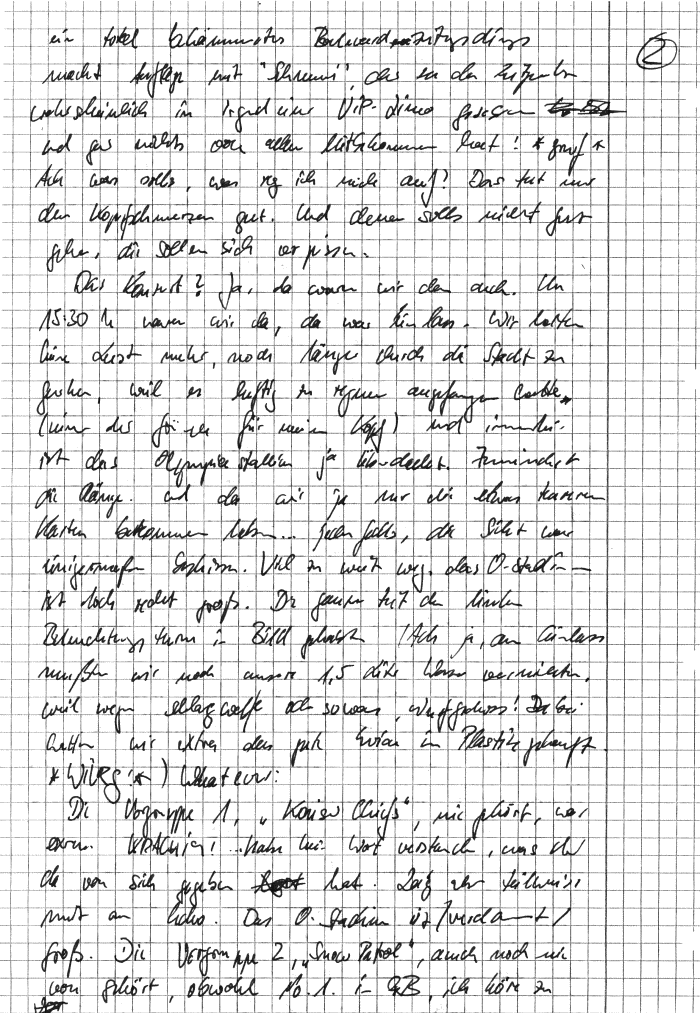 ein total bescheuertes
2
macht Auftritt mit "Schrumi", der zu der Zeit
wahrscheinlich in irgendeiner VIP-Limo gesessen
und gar nichts von allem mitbekommen hat! *grmf*
Ach was solls, was reg ich mich auf? Das tut nur
den Kopfschmerzen gut. Und denen solls nicht gut
gehen, die sollen sich verpissen.
Das Konzert? Ja, da waren wir dann auch. Um
15:30 h waren wir da, da war Einlass. Wir hatten
keine Lust mehr, noch länger durch die Stadt zu
gehen, weil es heftig zu regnen angefangen hatte,
(immer das für meinen Kopf) und immerhin
ist das Olympiastadion ja überdacht. Zumindest
die Ränge. und da wir ja nur die etwas teureren
Karten bekommen haben... jedenfalls, die Sicht war
einigermaßen beschissen. Viel zu weit weg, das O-Stadion
ist doch recht groß. Die ganze Zeit den linken
Beleuchtungsturm im Bild gehabt. (Ach ja, am Einlass
mußten wir noch unsere 1,5 Liter Wasser vernichten,
weil wegen Schlagwaffe oder sowas, Wurfgeschoss! Dabei
hatten wir extra das gute Evian in Plastik gekauft.
*WÜRG!*) Whatever:
Die Vorgruppe 1, "Kaiser Chiefs", nie gehört, war
enorm KRACHig! ...habe kein Wort verstanden, was der
da von sich gegeben hat. Lag aber teilweise
mit am Echo. Das O-Stadion ist /verdammt/
groß. Die Vorgruppe 2, "Snow Patrol", auch noch nie
von gehört, obwohl No. 1. in GB, ich höre zu